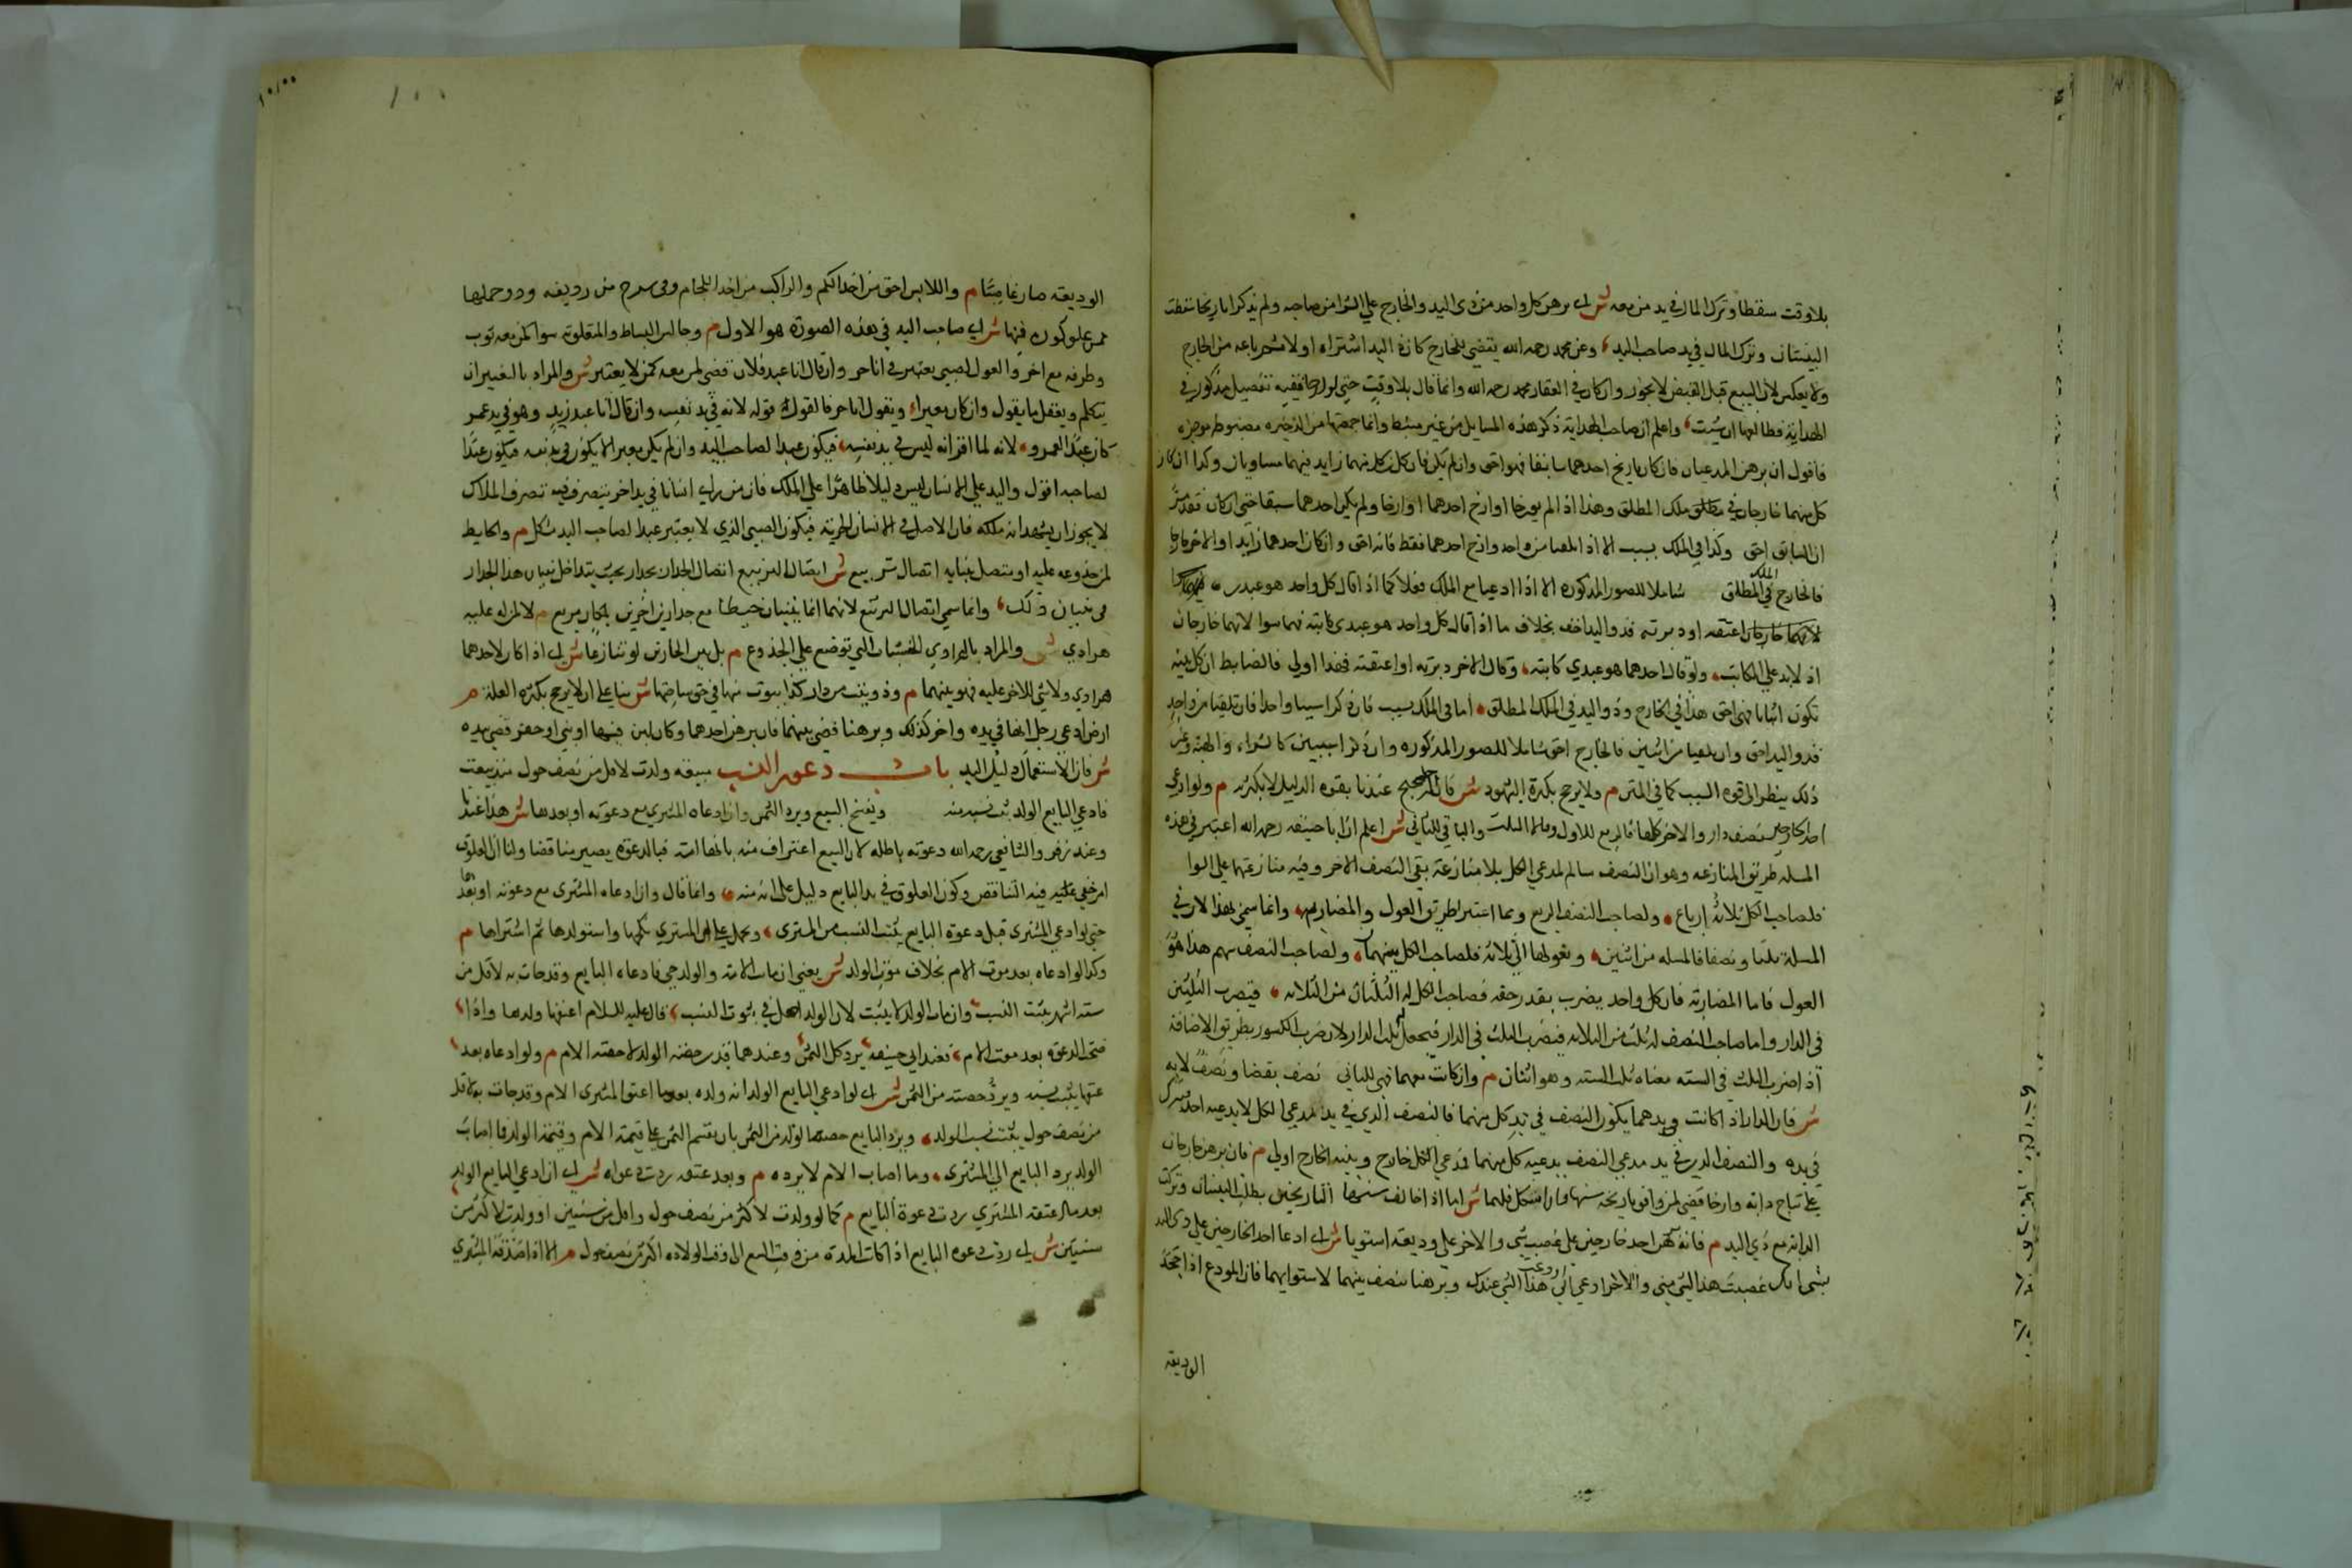 بلا وقت سقطا وترك المال في يد من معه ش اى برهن كل واحد من ذى اليد والخارج علي الشرا من صاحبه ولم يذكرا تاريخا سقطت
البينتان وترك المال في يد صاحب اليد وعن محمد رحمه الله يقضي للخارج كان ذا اليد اشتراه اولا ثم باعه من الخارج
ولا يعكس لان البيع قبل القبض لا يجوز وان كان في العقار عند محمد رحمه الله وانما قال بلا وقت حتى لو ارخا ففيه تفصيل مذكور في
الهداية فطالعها ان شيت واعلم ان صاحب الهداية ذكر هذه المسايل من غير ضبط وانما جمعتها من الذخيره مضبوطه موجزه
فاقول ان برهن المدعيان فان كان تاريخ احدهما سابقا فهو احق وان لم يكن فان كان كل منهما ذا يد فهما مساويان وكذا ان كان
كل منهما خارجا في مطلق ملك المطلق وهذا اذا لم يورخا او ارخ احدهما او ارخا ولم يكن احدهما سبقا حتى ان كان
ان السابق احق وكذا في الملك بسبب الا اذا تلقيا من واحد وارخ احدهما فقط فانه احق وان كان احدهما ذا يد او الاخر خارجا
فالخارج في الملك المطلق شاملا للصور المذكوره الا اذا ادعيا مع الملك فعلا كما اذا قال كل واحد هو عبدى
لانهما خارجان اعتقه او دبرته فذو اليد احق بخلاف ما اذا قال كل واحد هو عبدى كاتبته فهما سوا لانهما خارجان
اذ لا يد علي المكاتب ولو قال احدهما هو عبدي كاتبته وقال الاخر دبرته او اعتقته فهذا اولي فالضابط ان كل بينة
تكون اثباتا فهى احق هذا في الخارج وذو اليد في الملك المطلق اما في الملك بسبب فان ذكرا سببا واحدا فان تلقيا من واحد
فذو اليد احق وان تلقيا من اثنين فالخارج احق شاملا للصور المذكوره وان ذكرا سببين كالشراء والهبة وغير
ذلك ينظر الى قوة السبب كما في المتن م ولا يرجح بكثرة الشهود ش فان الترجيح عندنا بقوه الدليل لا بكثرته م ولو ادعى
احد خارجين نصف دار والاخر كلها فالربع للاول وقالا الثلث والباقي للثاني ش اعلم ان ابا حنيفه رحمه الله اعتبر في هذه
المسله طريق المنازعه وهو ان النصف سالم لمدعي الكل بلا منازعة بقي النصف الاخر وفيه منازعتهما علي السوا
فلصاحب الكل ثلاثة ارباع ولصاحب النصف الربع وهما اعتبرا طريق العول والمضاربه وانما سمي بهذا لان في
المسلة كلا ونصفا فالمسله من اثنين وتعول الي ثلاثه فلصاحب الكل سهمان ولصاحب النصف سهم هذا هو
العول فاما المضاربه فان كل واحد يضرب بقدر حقه فصاحب الكل له الثلثان من الثلاثه فيضرب الثلثين
في الدار واما صاحب النصف له ثلث من الثلاثه فيضرب الثلث في الدار فيحصل له ثلث الدار لان ضرب الكسور بطريق الاضافة
اذا ضرب الثلث في السته معناه ثلث السته وهو اثنان م وان كانت معهما فهي للثاني نصف بقضا ونصف لا به
ش فان الدار اذا كانت في يدهما يكون النصف في يد كل منهما فالنصف الذي في يد مدعي الكل لا يدعيه احد فيترك
في يده والنصف الذى في يد مدعي النصف يدعيه كل منهما فمدعي الكل خارج وبينة الخارج اولي م فان برهن خارجان
علي نتاج دابه وارخا قضي لمن وافق تاريخه سنها فان اشكل فلهما ش اما اذا خالف سنها التاريخين بطلت البينتان وتركت
الدابة مع ذي اليد م فان برهن احد خارجين على غصب شي والاخر على وديعته استويا ش اى ادعا احد الخارجين علي ذى اليد
بشي انك غصبت هذا الشي مني والاخر ادعي اني اودعت هذا الشي عندك وبرهنا ينصف بينهما لاستوايهما فان المودع اذا جحد
الوديعه
١٠٠
الوديعه صار غاصبا م واللابس احق من اخذ الكم والراكب من اخذ اللجام ومن في سرج من رديفه وذو حملها
ممن علق كوزه فيها ش اى صاحب اليد في هذه الصورة هو الاول م وجالس البساط والمتعلق به سوا كمن معه ثوب
وطرفه مع اخر والقول لصبي يعبر في انا حر وان قال انا عبد فلان قضي لمن معه كمن لا يعبر ش والمراد بالتعبير ان
يتكلم ويعقل ما يقول وان كان معبرا ويقول انا حر فالقول قوله لانه في يد نفسه وان قال انا عبد زيد وهو في يد عمر
كان عبدا لعمرو لانه لما اقر انه ليس في يد نفسه فيكون عبدا لصاحب اليد وان لم يكن معبرا لا يكون في يد نفسه فيكون عبدا
لصاحبه اقول واليد علي الانسان ليس دليلا ظاهرا علي الملك فان من راى انسانا في يد اخر يتصرف فيه تصرف الملاك
لا يجوز ان يشهد انه ملكه فان الاصل في الانسان الحرية فيكون الصبي الذي لا يعبر عبدا لصاحب اليد مشكل م والحايط
لمن جذوعه عليه او متصل ببنايه اتصال تربيع ش اتصال التربيع اتصال الجدار بجدار بحيث يتداخل لبنات هذا الجدار
في لبنات ذلك وانما سمي اتصال التربيع لانهما انما يبنيان ليحيطا مع جدارين اخرين بمكان مربع م لا لمن له عليه
هرادي ش والمراد بالهرادي الخشبات التي توضع علي الجذوع م بل بين الجارين لو تنازعا ش اى اذا كان لاحدهما
هرادي ولا شي للاخر عليه فهو بينهما م وذو بيت من دار كذى بيوت منها في حق ساحتها ش بنا علي ان لا يرجح بكثرة العلة م
ارض ادعى رجل انها في يده واخر كذلك وبرهنا قضي بينهما فان برهن احدهما او كان لبن فيها او بني او حفر قضي بيده
ش فان الاستعمال دليل اليد باب دعوى النسب مبيعه ولدت لاقل من نصف حول منذ بيعت
فادعي البايع الولد ثبت نسبه منه ويفسخ البيع ويرد الثمن وان ادعاه المشتري مع دعوته او بعدها ش هذا عندنا
وعند زفر والشافعي رحمه الله دعوته باطله لان البيع اعتراف منه بانها امته فبالدعوة يصير مناقضا ولنا ان العلوق
امر خفي فيه التناقض وكون العلوق في يد البايع دليل على انه منه وانما قال وان ادعاه المشترى مع دعوته او بعدها
حتى لو ادعي المشترى قبل دعوة البايع يثبت النسب من المشترى ويحمل علي ان المشتري نكحها واستولدها ثم اشتراها م
وكذا لو ادعاه بعد موت الام بخلاف موت الولد ش يعني ان مات الام والولد حي فادعاه البايع وقد جات به لاقل من
سته اشهر يثبت النسب وان مات الولد لا يثبت لان الولد اصل في ثبوت النسب قال عليه السلام اعتقها ولدها واذا
صحت الدعوة بعد موت الام فعند ابي حنيفه يرد كل الثمن وعندهما قدر حصة الولد لا حصة الام م ولو ادعاه بعد
عتقها يثبت نسبه ويرد حصته من الثمن ش اى لو ادعي البايع الولد انه ولده بعد ما اعتق المشترى الام وقد جات به لاقل
من نصف حول يثبت نسب الولد ويرد البايع حصة الولد من الثمن بان يقسم الثمن علي قيمة الام وقيمة الولد فما اصاب
الولد يرد البايع الي المشترى وما اصاب الام لا يرده م وبعد عتقه ردت دعواه ش اى ان ادعي البايع الولد
بعد ما اعتقه المشتري ردت دعوة البايع م كما لو ولدت لاكثر من نصف حول واقل من سنتين او ولدت لاكثر من
سنتين ش اى ردت دعوه البايع اذا كانت المدة من وقت البيع الى وقت الولاده اكثر من نصف حول م الا اذا صدقه المشتري